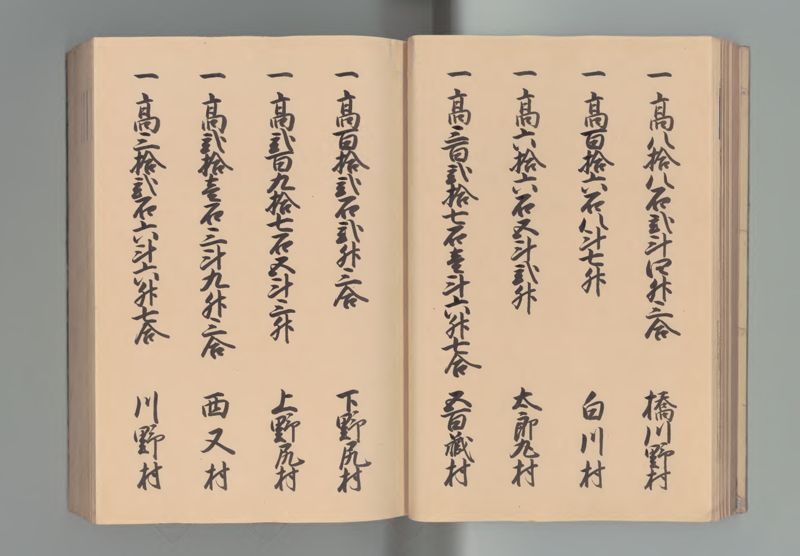 一高八拾八石弐斗四升三合 橋川野村
一高百拾六石八斗七升 白川村
一高六拾六石五斗弐升 太郎丸村
一高三百弐拾七石壱斗六升七合 五百蔵村
一高百拾弐石弐升三合 下野尻村
一高弐百九拾七石五斗三升 上野尻村
一高弐拾壱石三斗九升三合 西又村
一高三拾弐石六斗六升七合 川野村